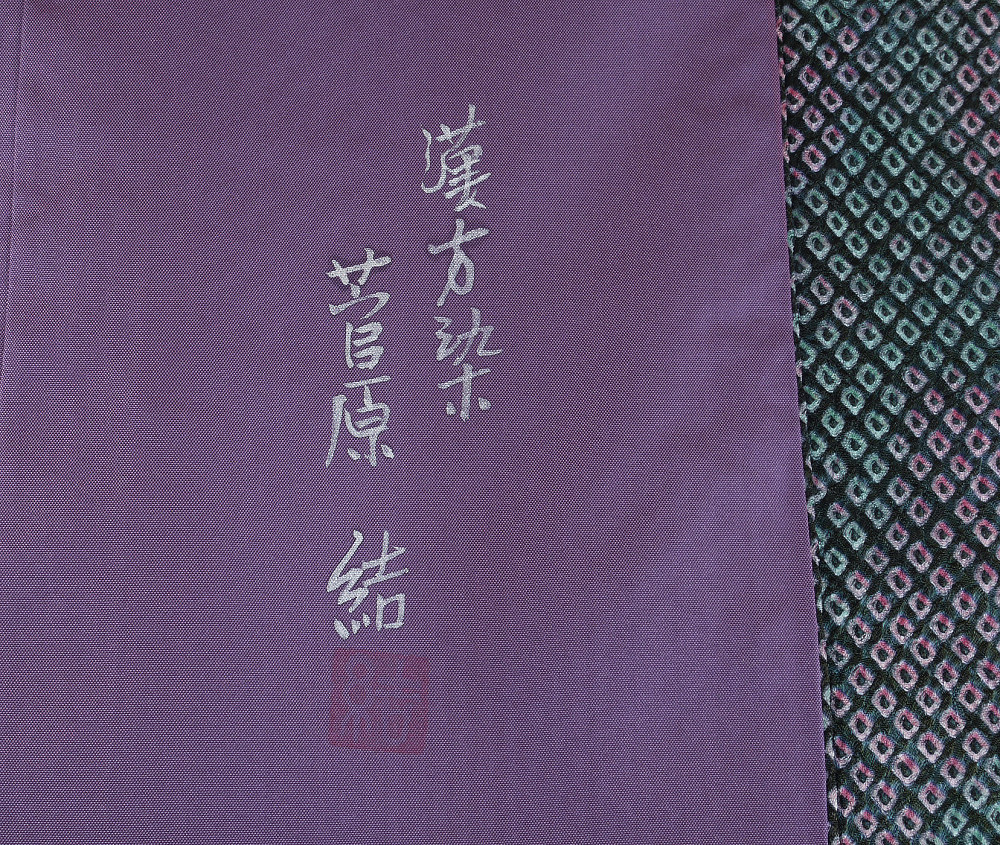 漢方染
菅原 結